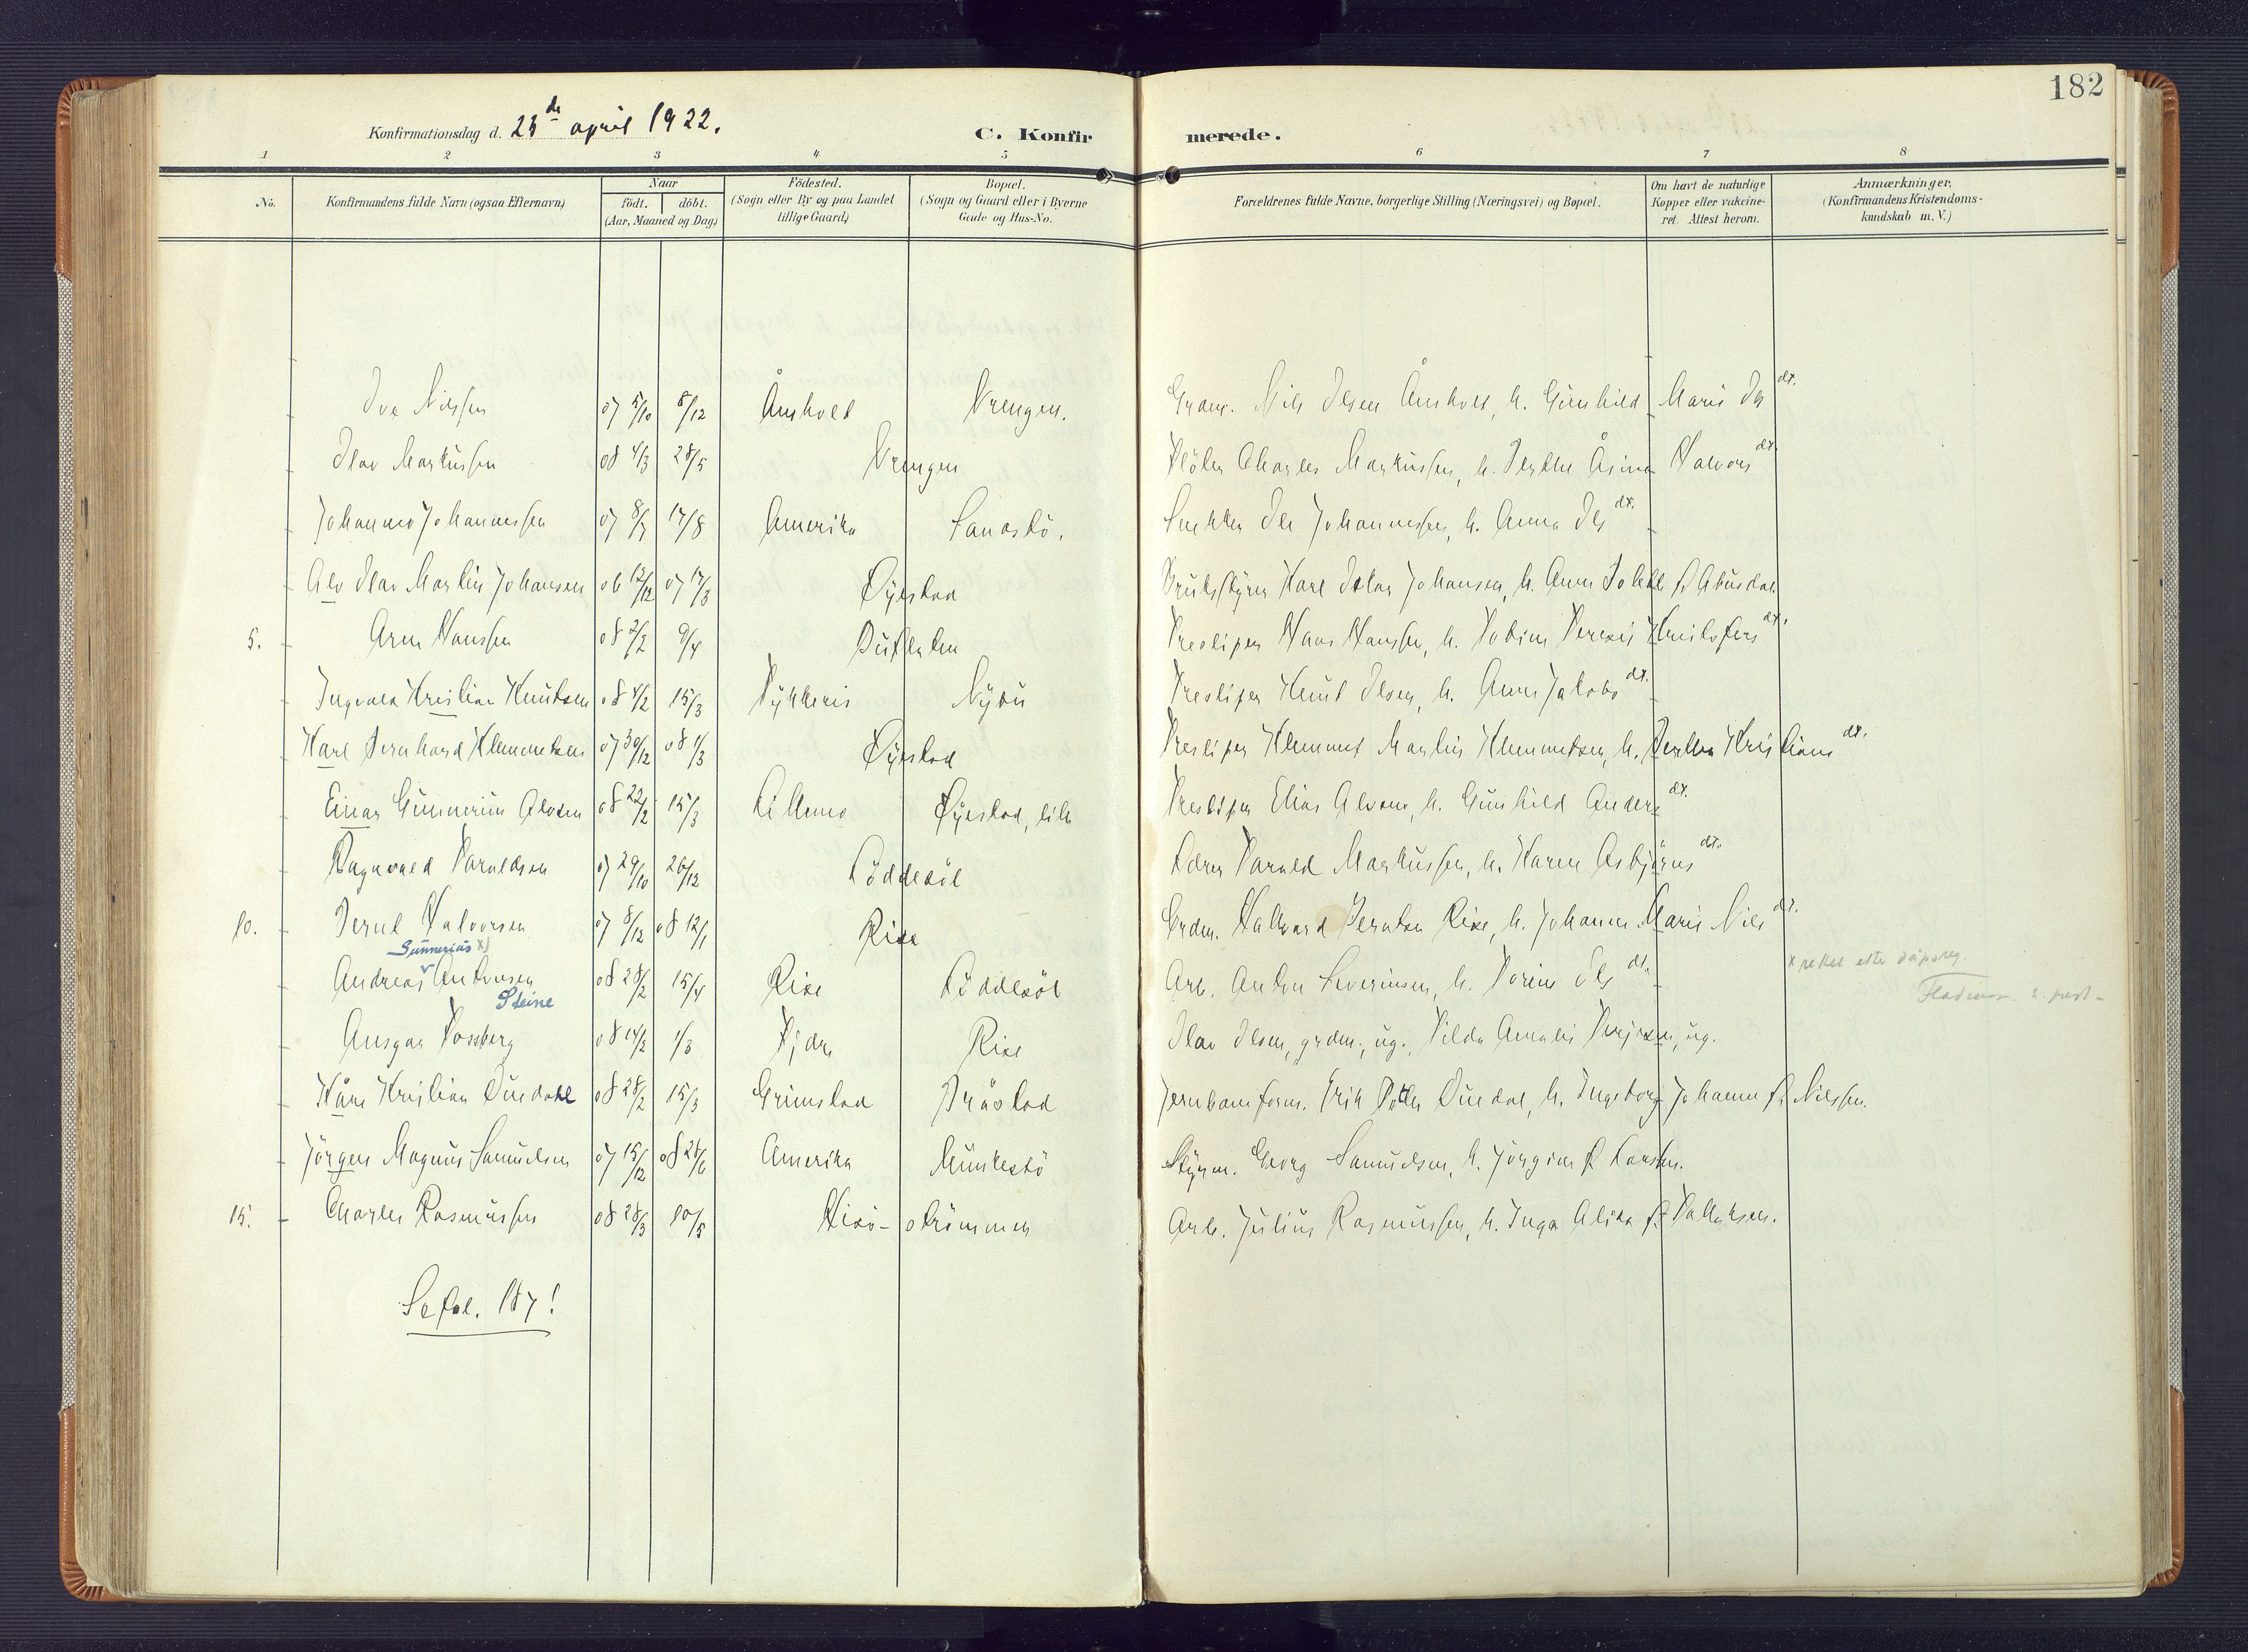 182
Konfirmationsdag d. 23de april 1922.
C. Konfirmerede.
1 2 3 4 5 6 7 8
No. Konfirmandens fulde Navn (ogsaa Efternavn) Naar født. døbt. (Aar, Maaned og Dag) Fødested. (Sogn eller By og paa Landet tillige Gaard) Bopæl. (Sogn og Gaard eller i Byerne Gade og Hus-No. Forældrenes fulde Navne, borgerlige Stilling (Næringsvei) og Bopæl. Om havt de naturlige Kopper eller vakcineret. Attest herom. Anmærkninger. (Konfirmandens Kristendomskundskab m. V.)
Nilssen 07 5/10 8/12 Åmholt Vrengen. Grdm. Nils Olsen Åmholt, h. Gunhild Marie Ols dt.
Olav Markussen 08 4/3 28/5 Vrengen Fløter Charles Markussen, h. Halvors dt.
Johannes Johannessen 07 8/7 17/8 Amerika Sandstø. Snekker Ole Johannessen, h. Anna Ols dt.
Alv Olav Martin Johansen 06 12/12 07 17/3 Øyestad Brukstyrer Karl Oskar Johansen, h. Anna f.
5. Arne Hanssen 08 2/2 9/4 Hans Hanssen, h. Kristofers dt.
Ingvald Kristian Knutsen 08 4/2 15/3 Nybu Knut Olsen, h. Anne Jakobs dt.
Karl Bernhard Klemmetsen 07 30/12 08 1/3 Øyestad Klemmet Martin Klemmetsen, h. Berthe Kristians dt.
Einar Gunnerius Alvsen 08 22/2 15/3 Øyestad, Elias Alvsen, h. Gunhild Anders dt.
Ragnvald Haraldsen 07 29/10 26/12 Løddesøl Lærer Harald Markussen, h. Karen Asbjørns dt.
10. Bernt Halvorsen 07 8/12 08 12/1 Rise Grdm. Halvard Berntsen Rise, h. Johanne Marie Nils dt.
Gunnerius x)
Andreas Antonsen 08 28/2 15/4 Rise Løddesøl Arb. Anton Severinsen, h. Torine Ols dt. x rettet efter dåpsreg.
Steine
Ansgar Rossberg 08 14/2 1/3 Rise Olav Olsen, grdm., ug., Hilda Amalie ug.
Kåre Kristian Duedahl 08 28/2 15/3 Grimstad Bråstad Jernbaneform. Duedal, h. Ingeborg Johanne f. Nilssen.
Jørgen Magnus Samuelsen 07 15/12 08 28/6 Amerika Styrm. Georg Samuelsen, h. Jørgine f. Larsen.
15. Charles Rasmussen 08 28/3 10/5 Hisø- strømmen Arb. Julius Rasmussen, h. Inga Alida f.
Se fol. 187!